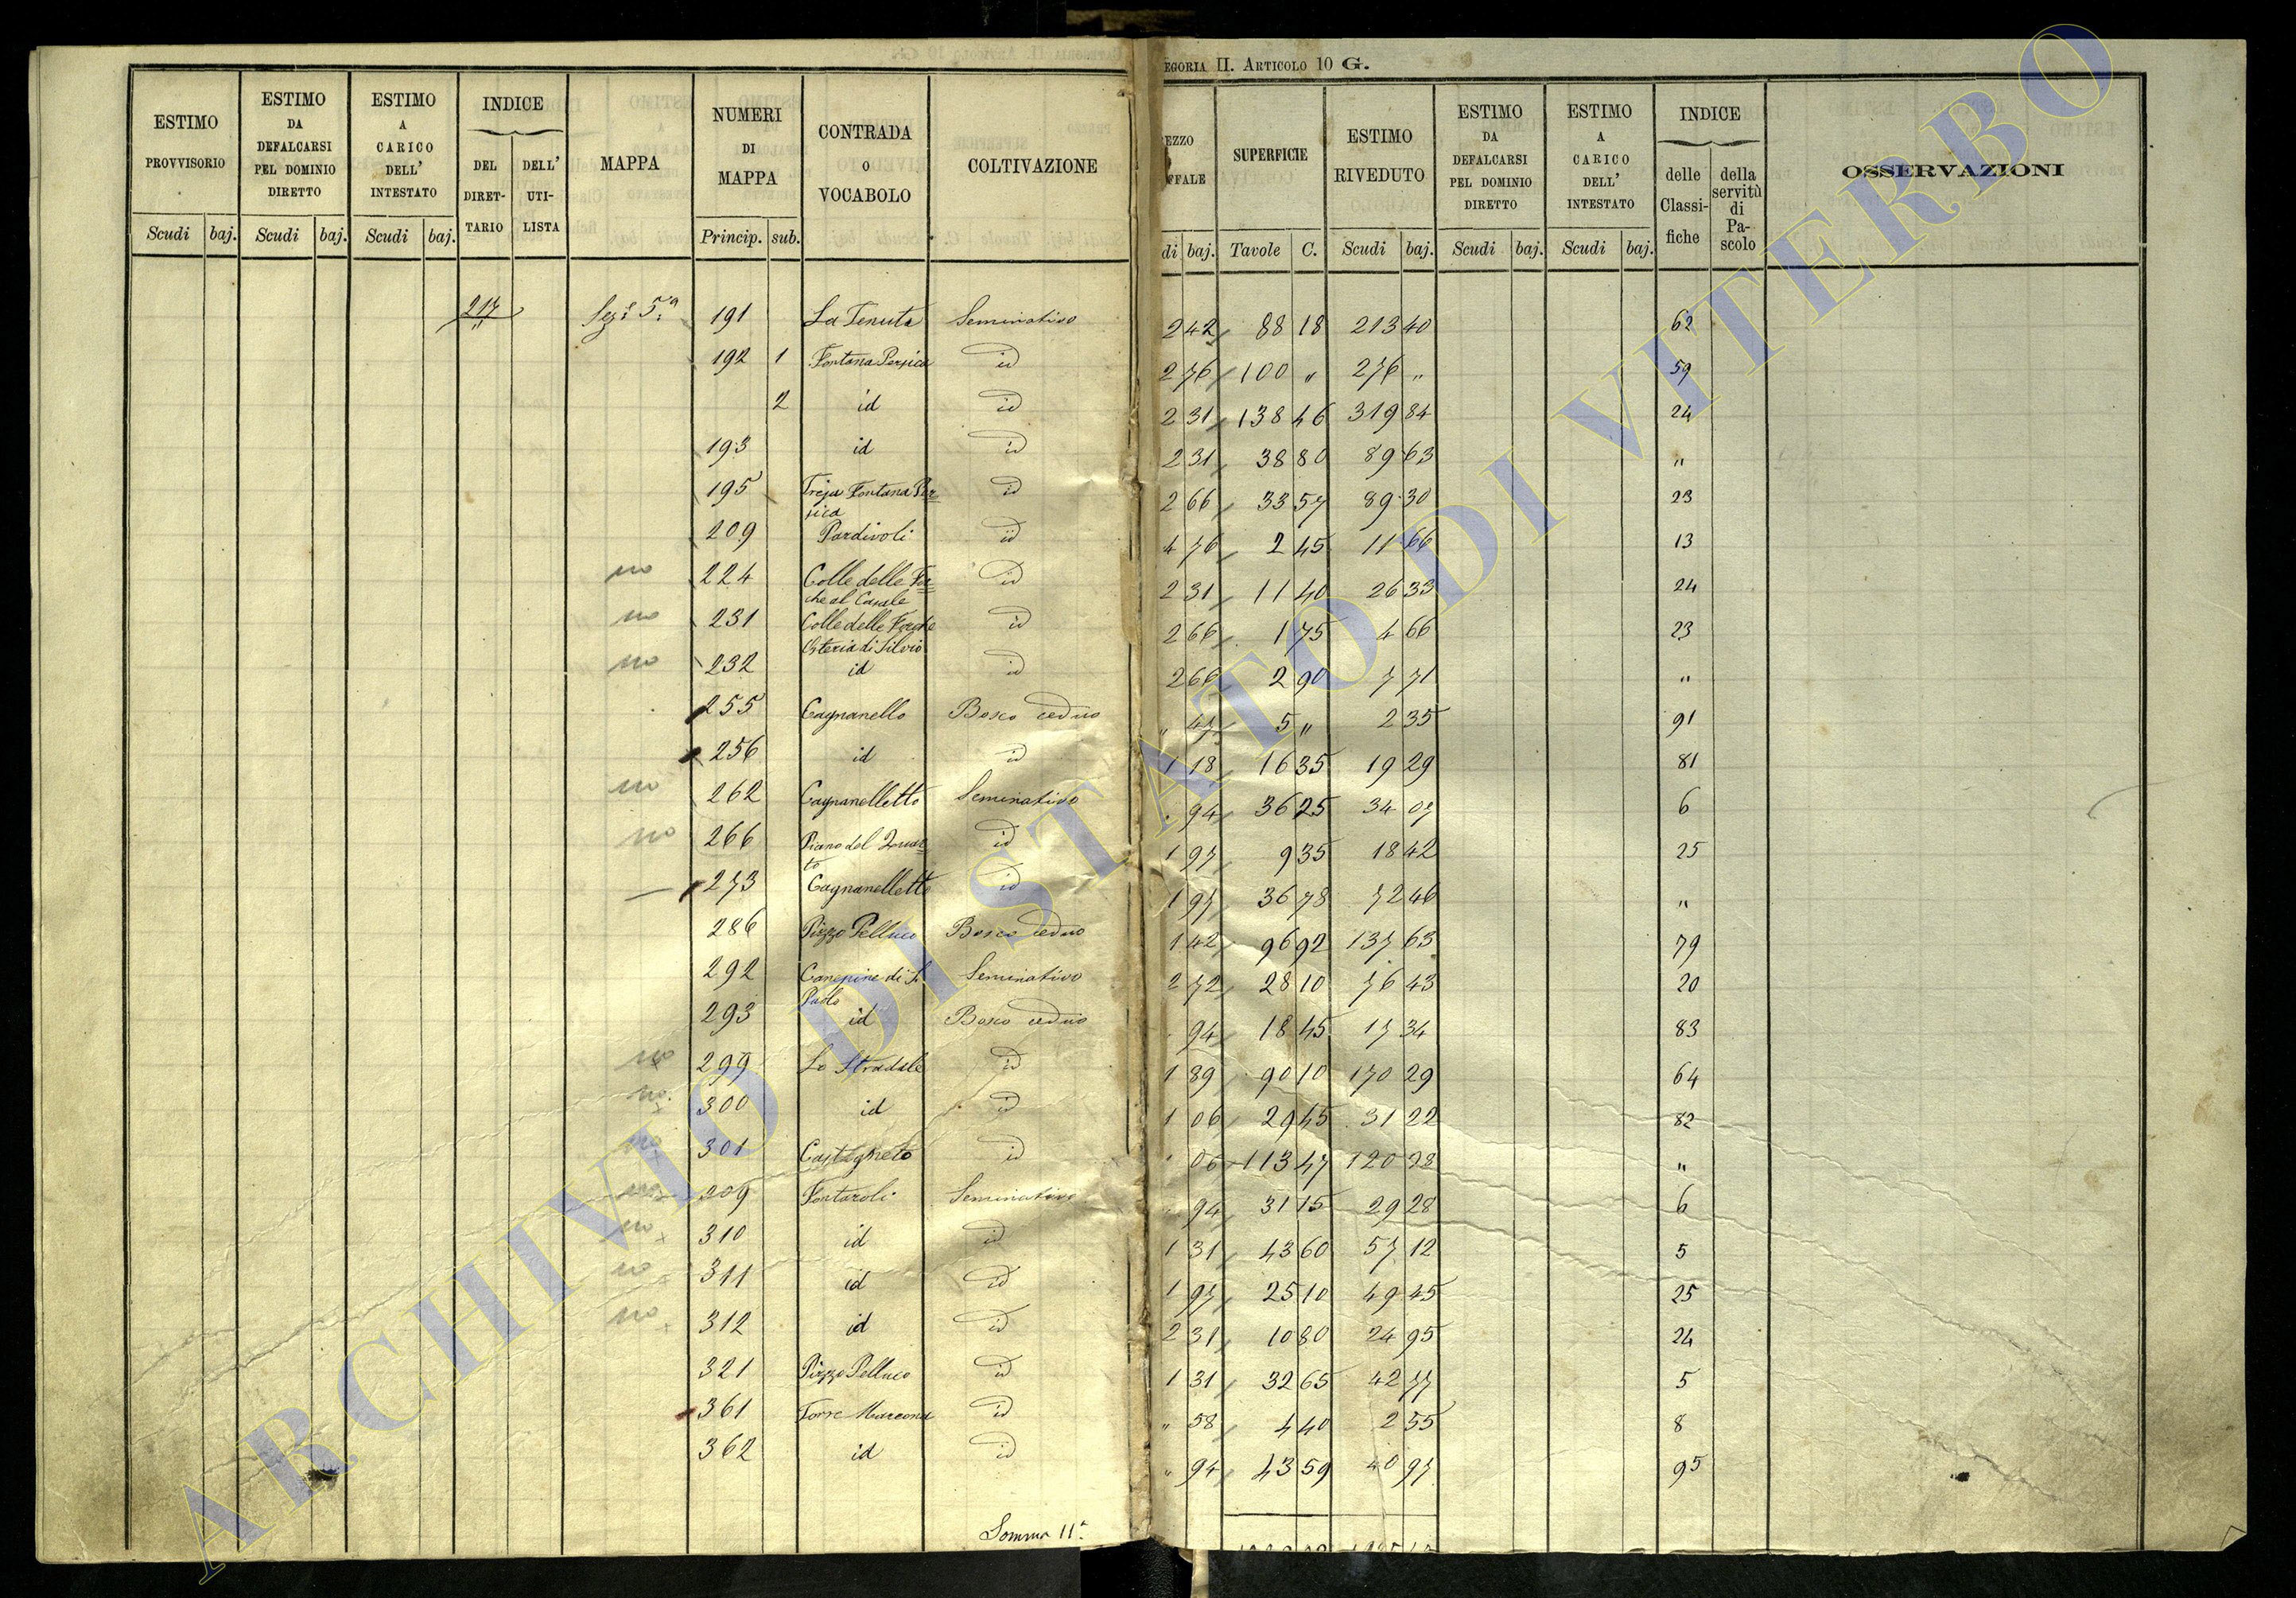 EGORIA II. ARTICOLO 10 G.
ESTIMO PROVVISORIO | ESTIMO DA DEFALCARSI PEL DOMINIO DIRETTO | ESTIMO A CARICO DELL' INTESTATO | INDICE DEL DIRET-TARIO | DELL' UTI-LISTA | MAPPA | NUMERI DI MAPPA | CONTRADA O VOCABOLO | COLTIVAZIONE | EZZO FFALE | SUPERFICIE | ESTIMO RIVEDUTO | ESTIMO DA DEFALCARSI PEL DOMINIO DIRETTO | ESTIMO A CARICO DELL' INTESTATO | INDICE delle Classi-fiche | della servitù di Pa-scolo | OSSERVAZIONI
Scudi | baj. | Scudi | baj. | Scudi | baj. | Princip. | sub. | di | baj. | Tavole | C. | Scudi | baj. | Scudi | baj. | Scudi | baj.
217 | Sez.e 5.a | 191 | La Tenuta | Seminativo | 2 42 | 88 18 | 213 40 | 62
192 | 1 | Fontana Persica | id | 2 76 | 100 " | 276 " | 59
2 | id | id | 2 31 | 138 46 | 319 84 | 24
193 | id | id | 2 31 | 38 80 | 89 63 | "
195 | Treja Fontana Per=
sica | id | 2 66 | 33 57 | 89 30 | 23
209 | Pardivoli | id | 4 76 | 2 45 | 11 66 | 13
no | 224 | Colle delle For=
che al Casale | id | 2 31 | 11 40 | 26 33 | 24
no | 231 | Colle delle Forche
Osteria di Silvio | id | 2 66 | 1 75 | 4 66 | 23
no | 232 | id | id | 2 66 | 2 90 | 7 71 | "
255 | Cagnanello | Bosco ceduo | " 47 | 5 " | 2 35 | 91
256 | id | id | 1 18 | 16 35 | 19 29 | 81
no | 262 | Cagnanelletto | Seminativo | 94 | 36 25 | 34 07 | 6
no | 266 | Piano del Quar=
to | id | 1 97 | 9 35 | 18 42 | 25
273 | Cagnanelletto | id | 1 97 | 36 78 | 72 46 | "
286 | Pizzo Pelluco | Bosco ceduo | 1 42 | 96 92 | 137 63 | 79
292 | Canepine di S.
Paolo | Seminativo | 2 72 | 28 10 | 76 43 | 20
293 | id | Bosco ceduo | 94 | 18 45 | 17 34 | 83
no | 299 | Lo Stradale | id | 1 89 | 90 10 | 170 29 | 64
no | 300 | id | id | 1 06 | 29 45 | 31 22 | 82
no | 301 | Castagneto | id | 06 | 113 47 | 120 28 | "
no | 309 | Fontaroli | Seminativo | 94 | 31 15 | 29 28 | 6
no | 310 | id | id | 1 31 | 43 60 | 57 12 | 5
no | 311 | id | id | 1 97 | 25 10 | 49 45 | 25
no | 312 | id | id | 2 31 | 10 80 | 24 95 | 24
321 | Pizzo Pelluco | id | 1 31 | 32 65 | 42 77 | 5
361 | Torre Marcona | id | " 58 | 4 40 | 2 55 | 8
362 | id | id | " 94 | 43 59 | 40 97 | 95
Somma 11.a
ARCHIVIO DI STATO DI VITERBO